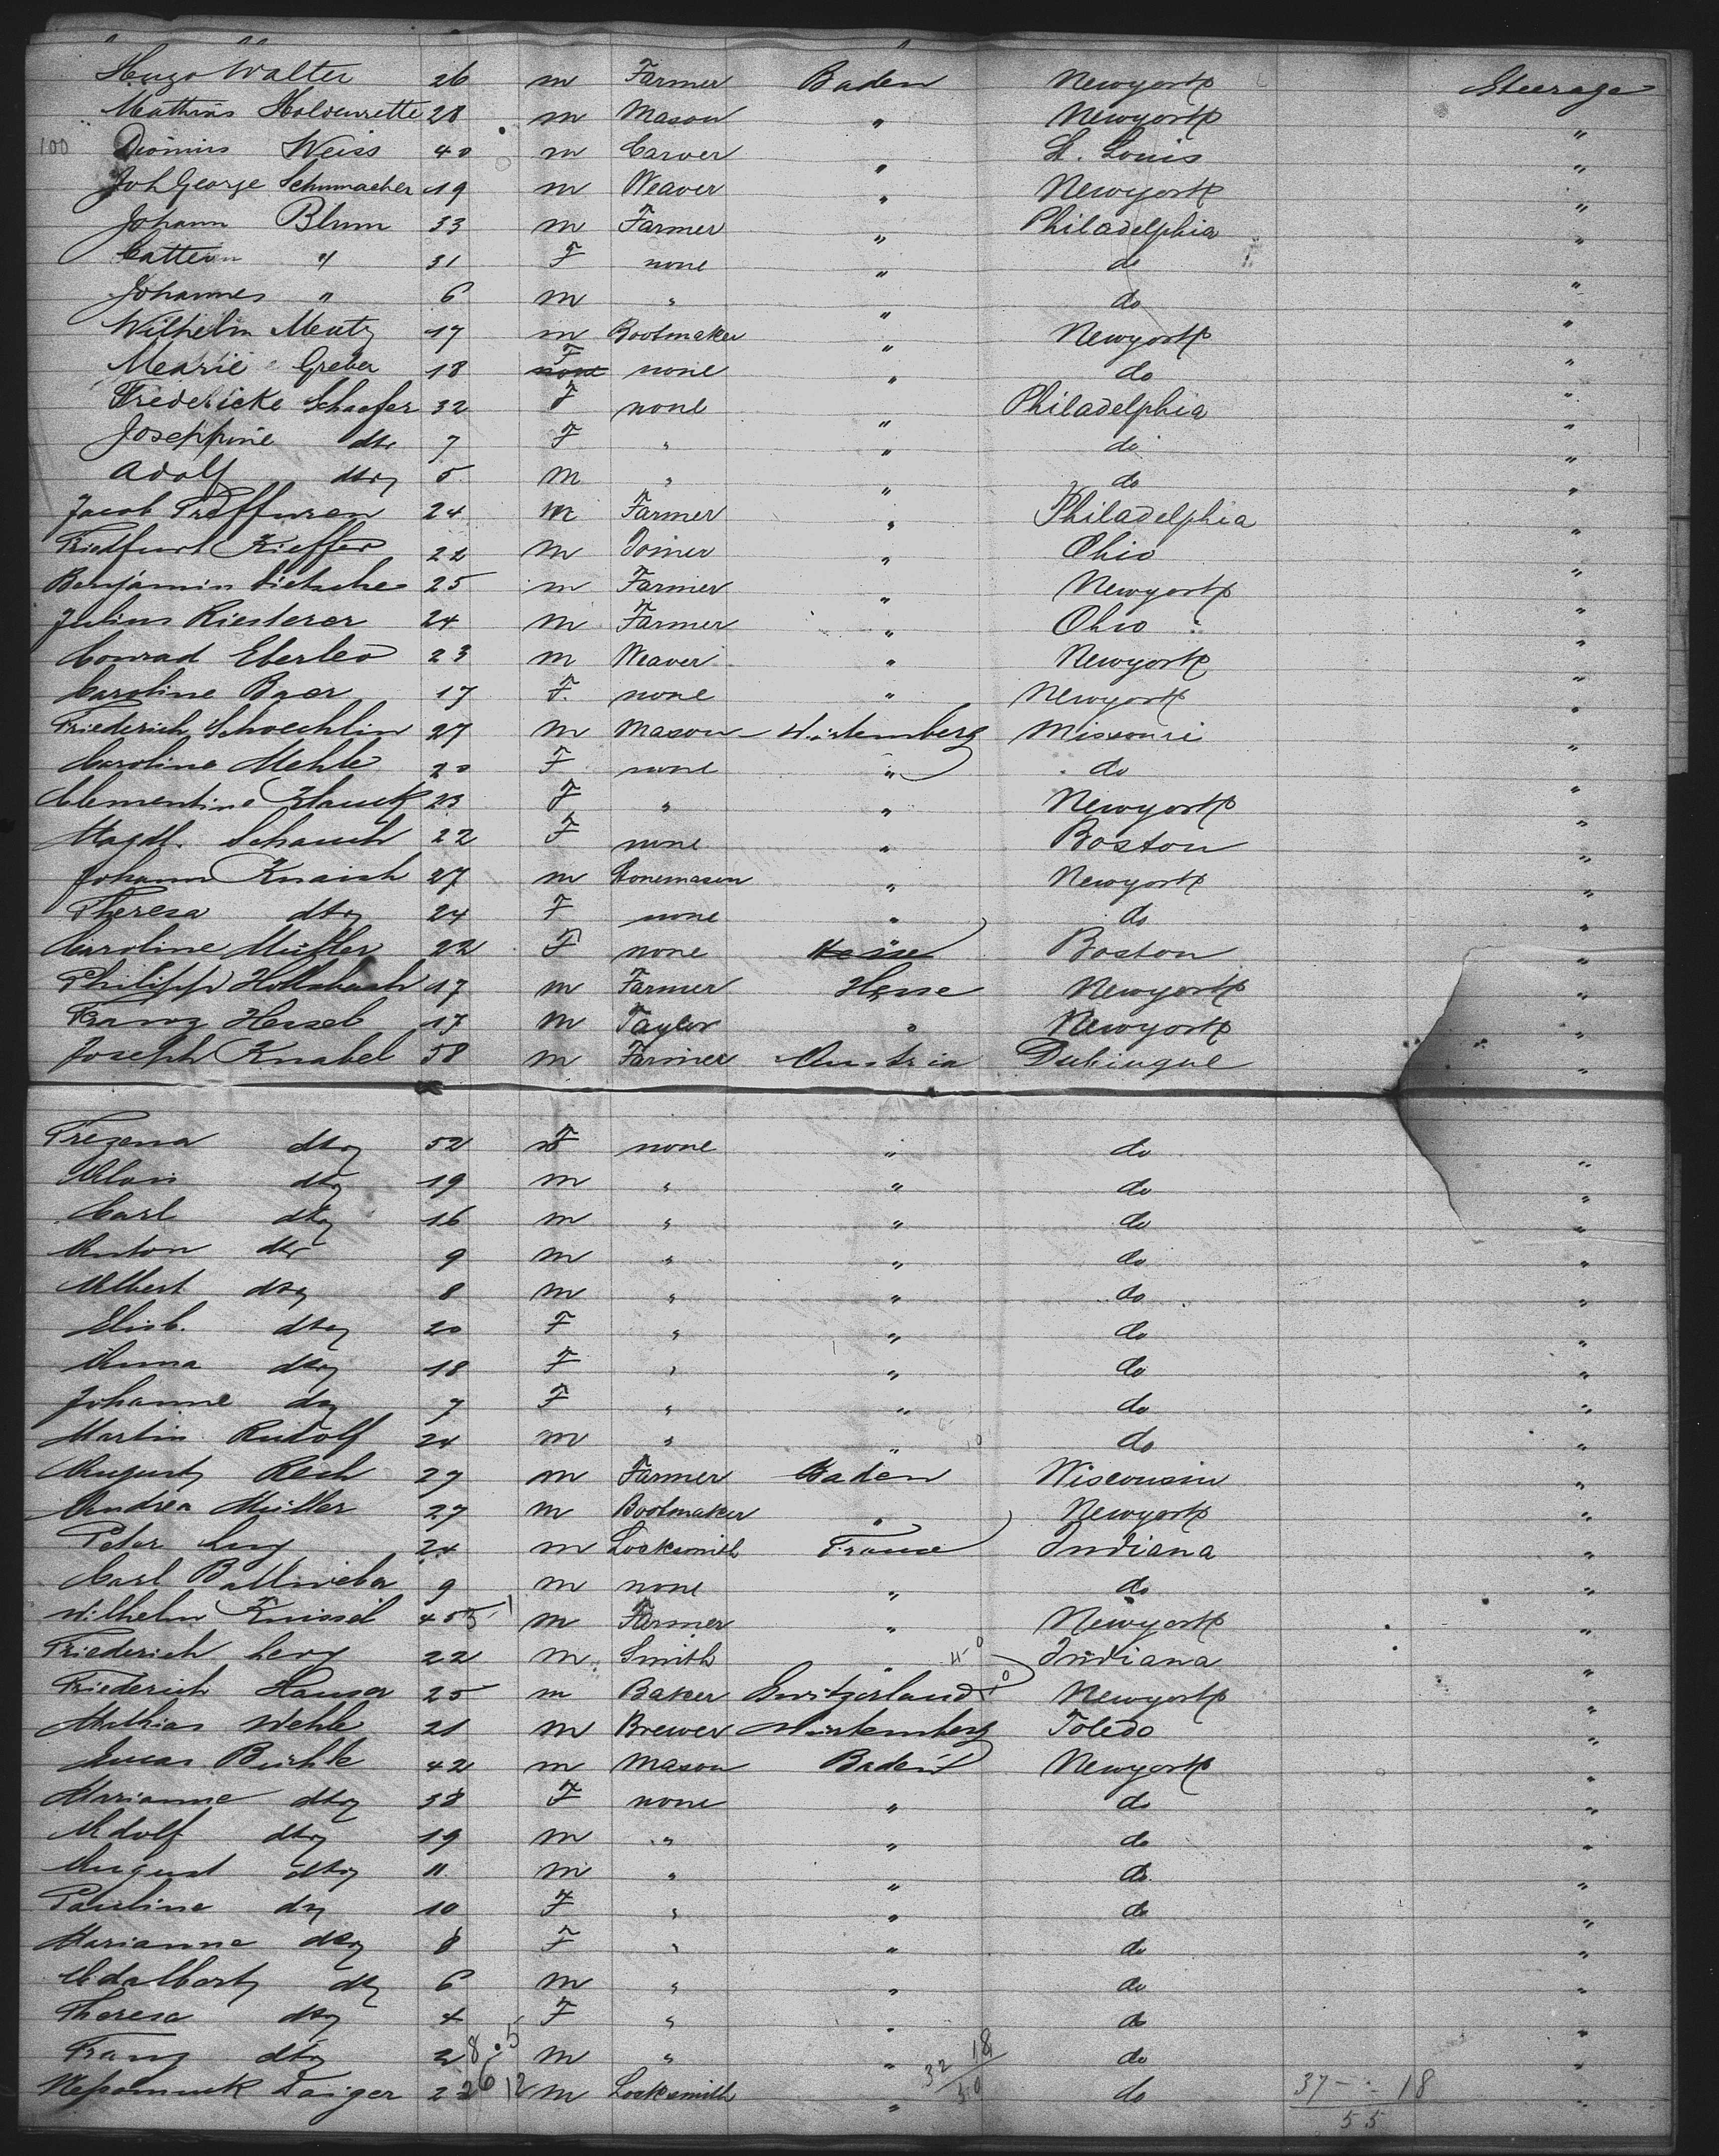 Hugo Walter 26 m Farmer Baden Newyork Steerage
Mathias 28 m Mason " Newyork "
100 Weiss 40 m Carver " St. Louis "
Joh George Schumacher 19 m Weaver " Newyork "
Johann Blum 33 m Farmer " Philadelphia "
" 31 F none " do "
Johannes " 6 m " " do "
Wilhelm Mentz 17 m Bootmaker " Newyork "
Marie Greber 18 F none " do "
Fredericke Schaefer 32 F none " Philadelphia "
Josephine dto 7 F " " do "
Adolf dto 5 m " " do "
Jacob 24 m Farmer " Philadelphia "
Kieffer 22 m Joiner " Ohio "
Benjamin 25 m Farmer " Newyork "
Julius Riesterer 24 m Farmer " Ohio "
Conrad Eberle 23 m Weaver " Newyork "
Caroline Baer 17 F. none " Newyork "
Friederich Schoechlin 27 m Mason Wirtemberg Missouri "
Caroline Mehle 20 F none " do "
Clementine 23 F " " Newyork "
Magdl. Schauch 22 F none " Boston "
Johann Knaish 27 m Stonemason " Newyork "
Theresa dto 24 F none " do "
Caroline Müller 22 F none Hesse Boston "
Philipp 17 m Farmer Hesse Newyork "
Franz Hessel 17 m Taylor " Newyork "
Joseph Knabel 58 m Farmer Austria Dubuque "
dto 52 F none " do "
Alois dto 19 m " " do "
Carl dto 16 m " " do "
Anton dto 9 m " " do "
Albert dto 8 m " " do "
Elisb. dto 20 F " " do "
Anna dto 18 F " " do "
Johanne do 7 F " " do "
Martin Rudolf 24 m " " do "
August Resh 27 m Farmer Baden Wisconsin "
Andrea Müller 27 m Bootmaker " Newyork "
Peter 24 m Locksmith France Indiana "
Carl Ballweber 9 m none " do "
Wilhelm Knissel m Farmer " Newyork "
Friederich 22 m Smith " Indiana "
Friederich Hauser 25 m Baker Switzerland Newyork "
Mathias Wehle 21 m Brewer Wirtemberg Toledo "
Lucas Bühle 42 m Mason Baden Newyork "
Marianne dto 38 F none " do "
Adolf dto 19 m " " do "
August dto 11 m " " do "
Pauline do 10 F " " do "
Marianne dto 8 F " " do "
Adalbert dto 6 m " " do "
Theresa dto 4 F " " do "
Franz dto 2 m " " do "
Nepomuck m Locksmith " do "
37 - 18
55